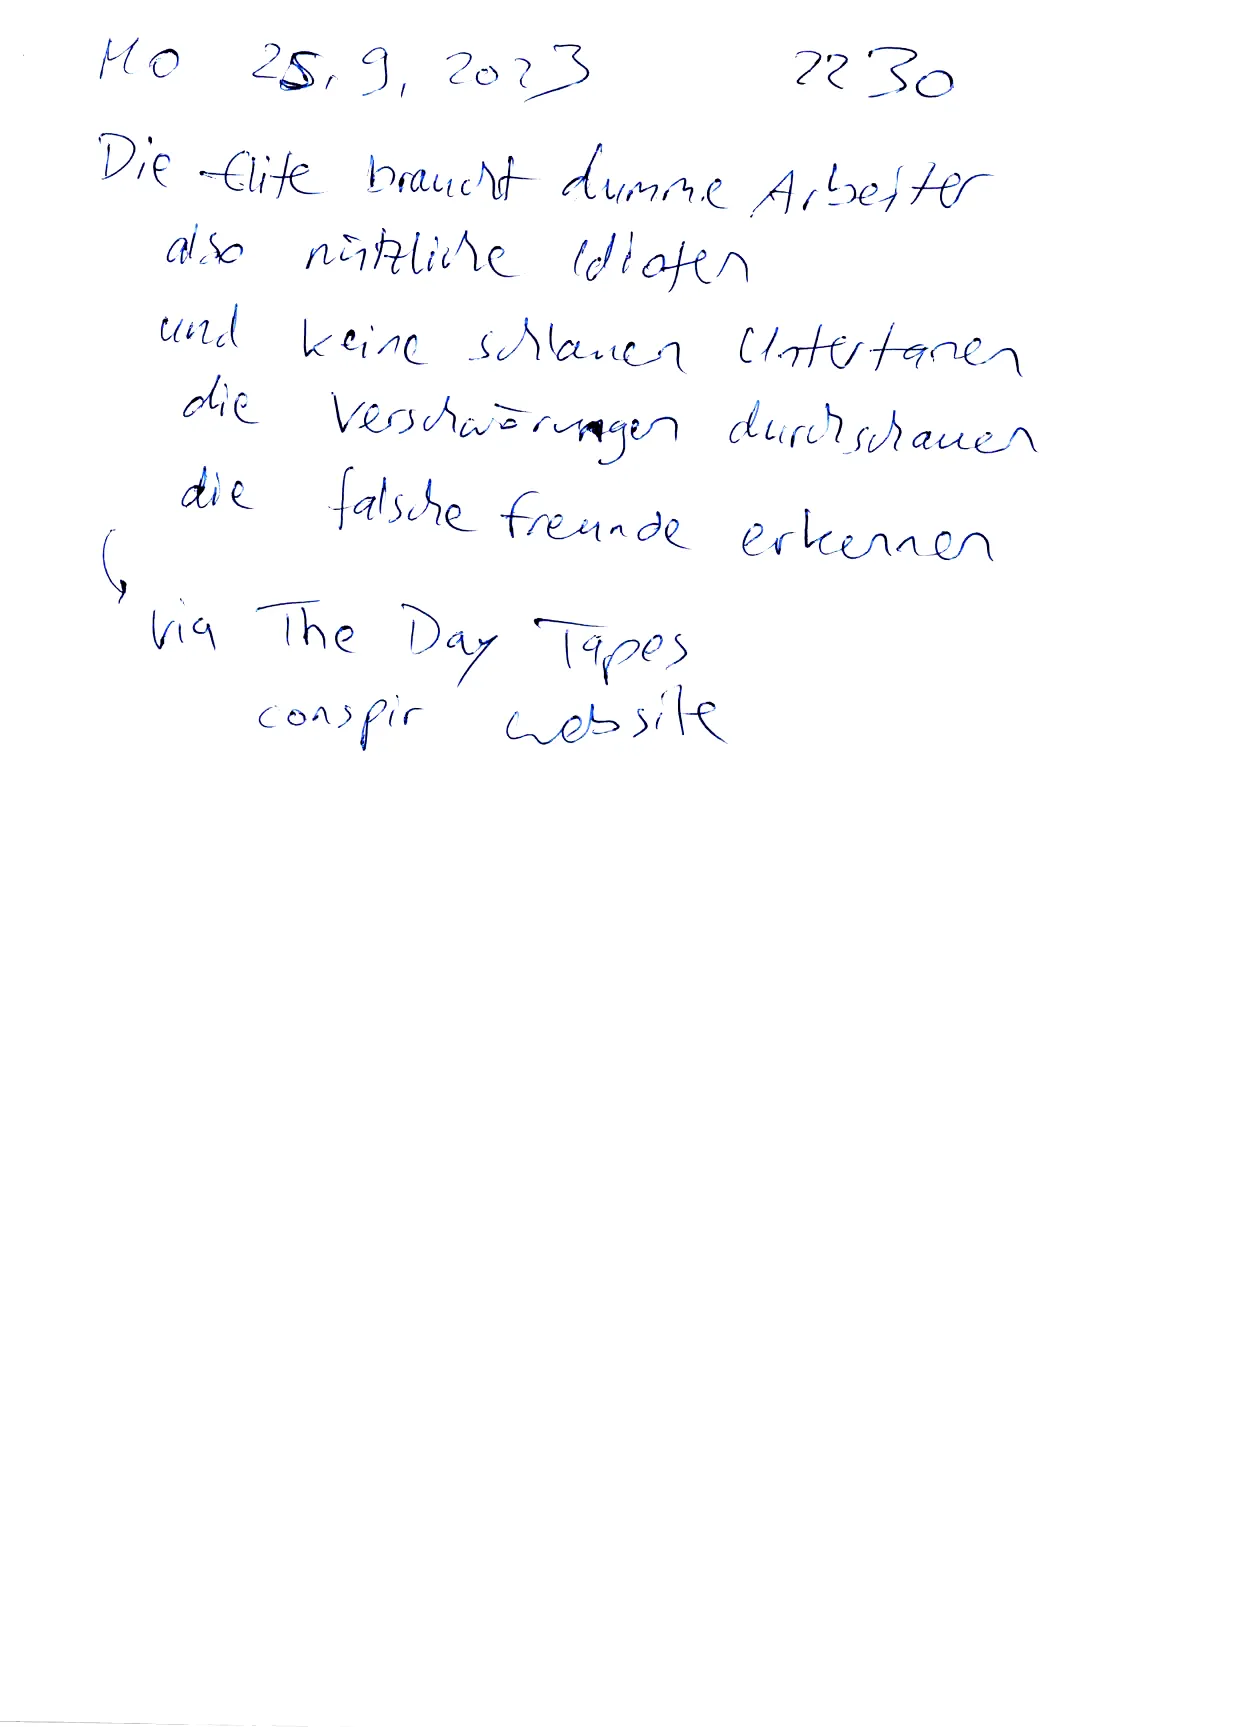 Mo 25.9.2023 22 30
Die Elite braucht dumme Arbeiter
also nützliche Idioten
und keine schlauen Untertanen
die Verschwörungen durchschauen
die falsche Freunde erkennen
via The Day Tapes
conspir website